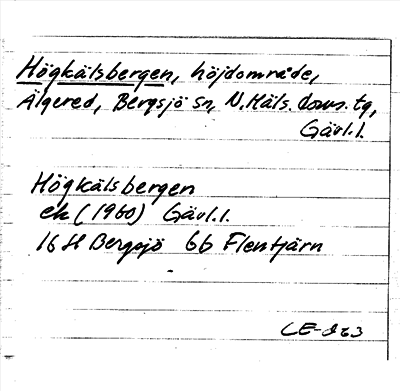 Högkälsbergen, höjdområde,
Älgered, Bergsjö sn, N. Häls. doms. tg,
Gävl.l.
Högkälsbergen
ek (1960) Gävl.l.
16H Bergsjö 6b Flentjärn